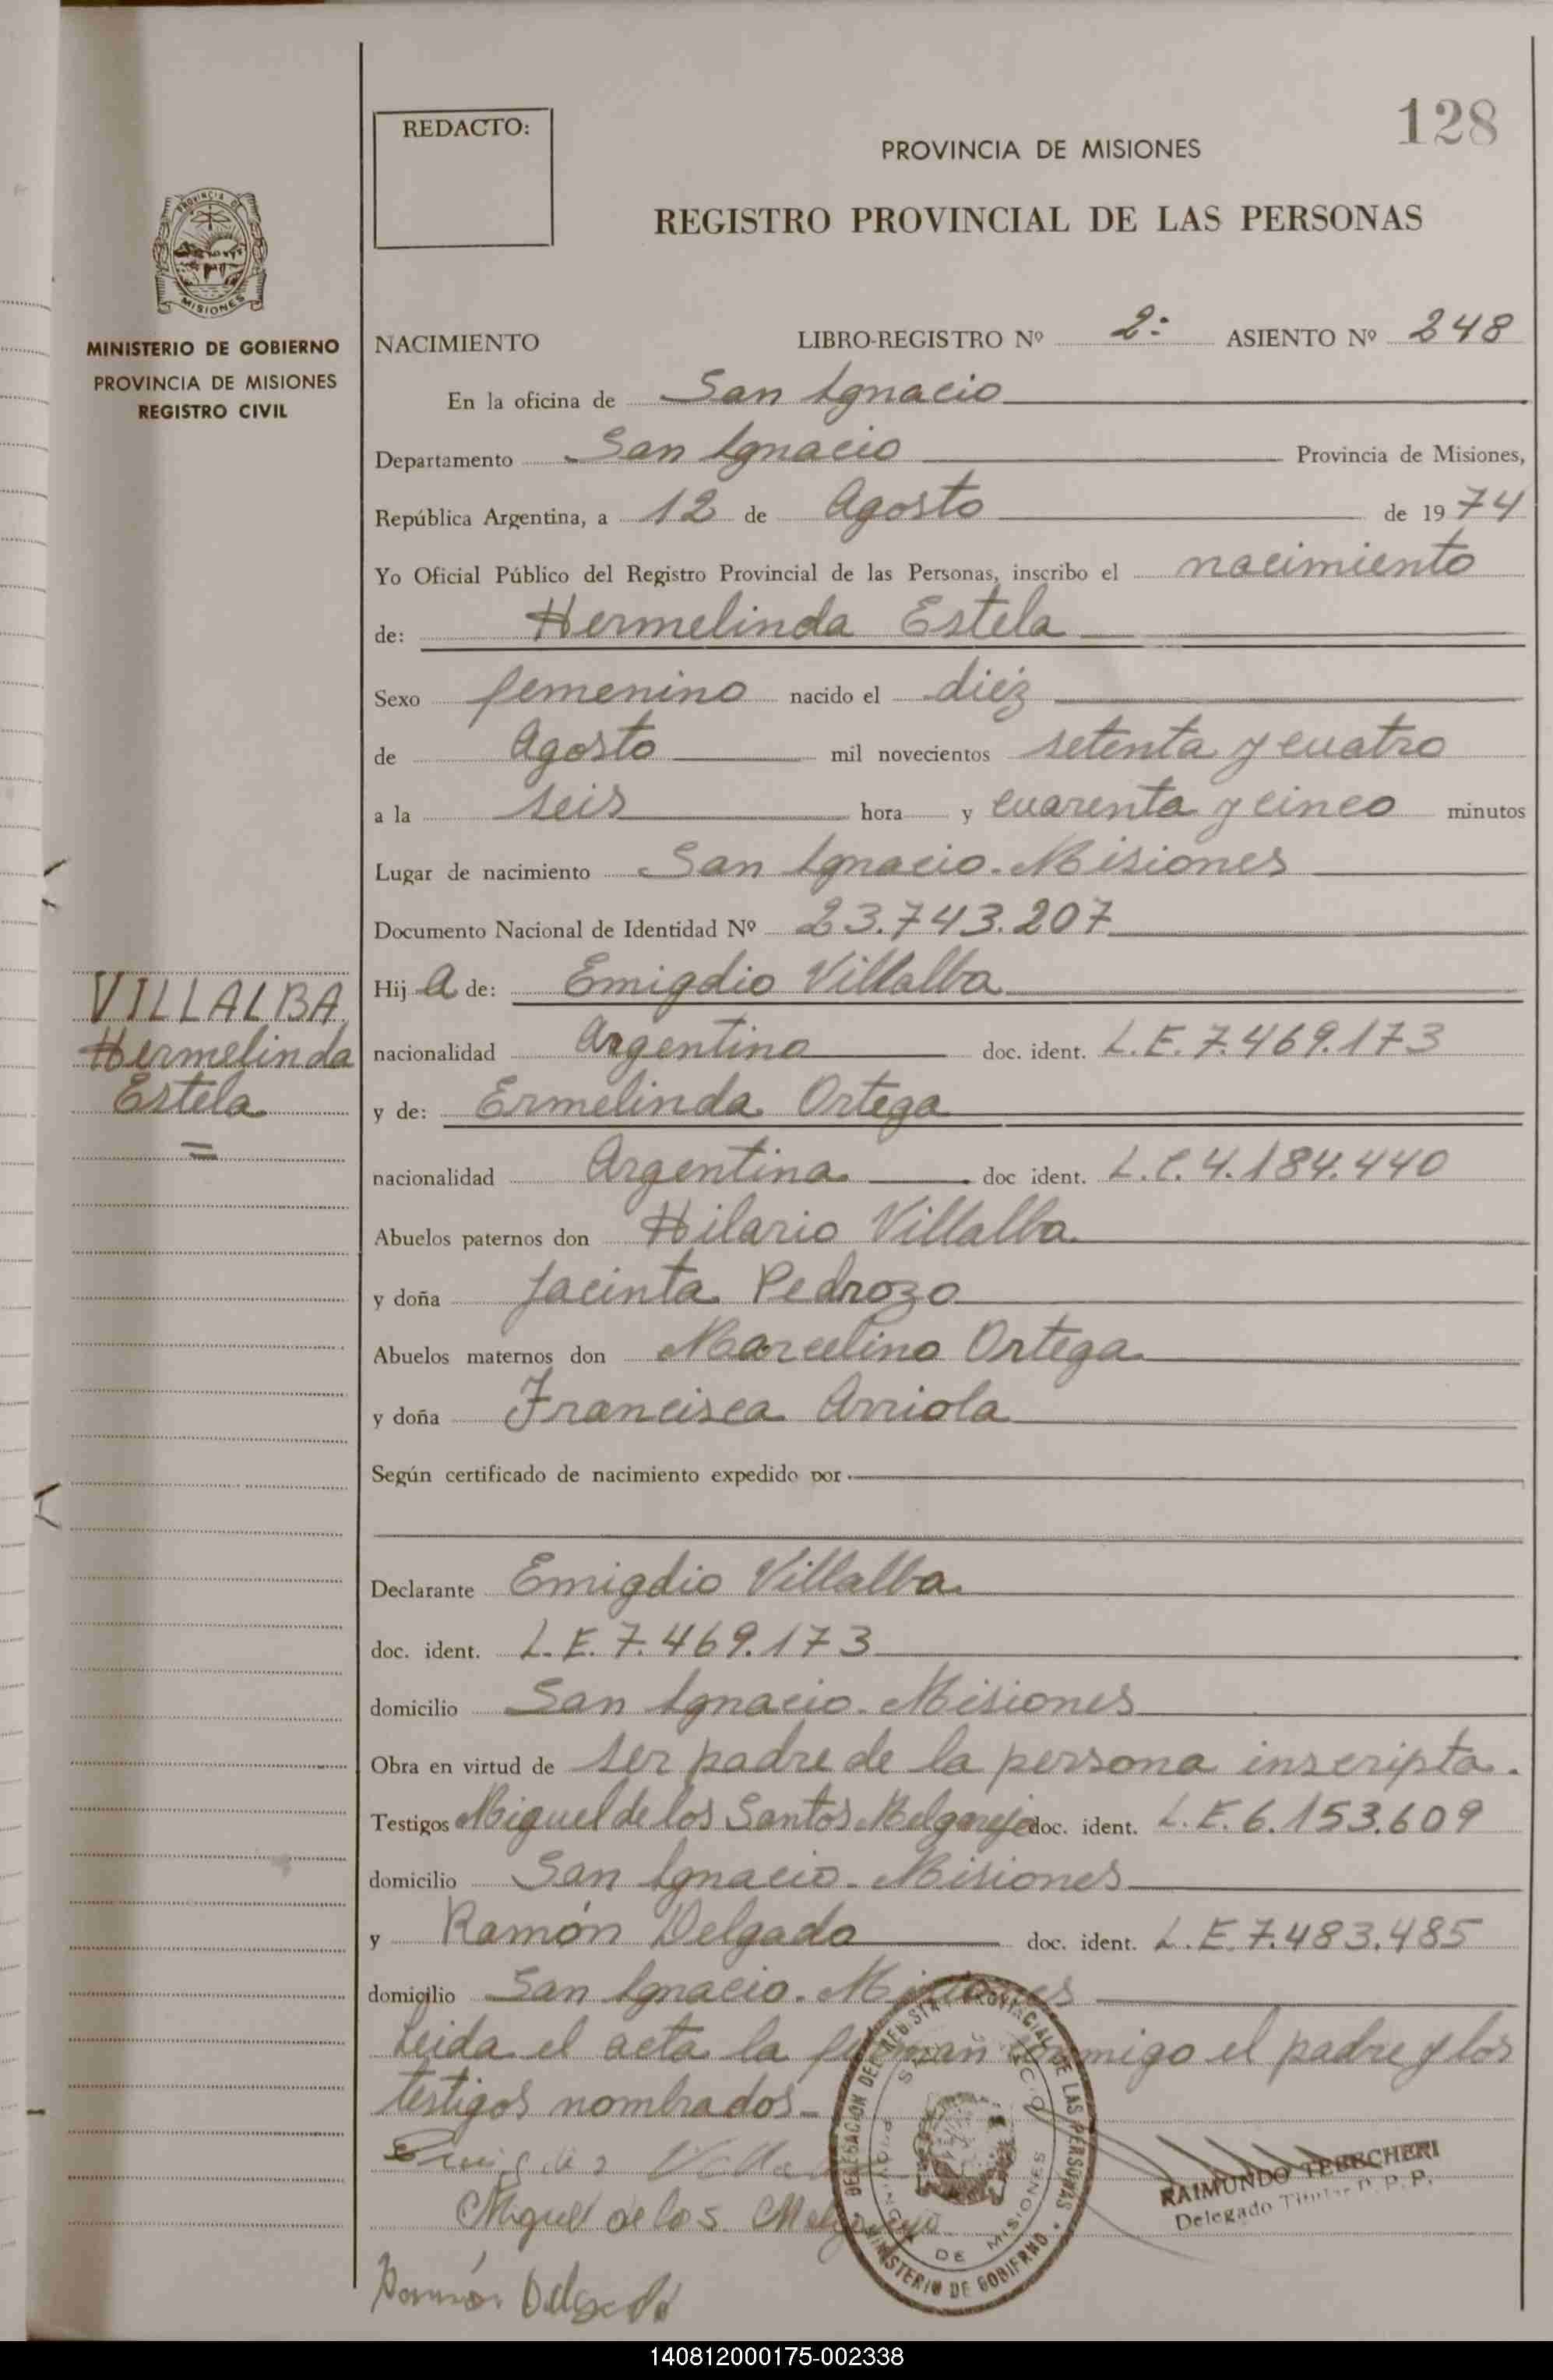 128
REDACTO:
PROVINCIA DE MISIONES
REGISTRO PROVINCIAL DE LAS PERSONAS
PROVINCIA DE
MISIONES
MINISTERIO DE GOBIERNO
PROVINCIA DE MISIONES
REGISTRO CIVIL
NACIMIENTO LIBRO-REGISTRO Nº 2º ASIENTO Nº 248
En la oficina de San Ignacio
Departamento San Ignacio Provincia de Misiones,
República Argentina, a 12 de Agosto de 1974
Yo Oficial Público del Registro Provincial de las Personas, inscribo el nacimiento
de: Hermelinda Estela
Sexo femenino nacido el diéz
de Agosto mil novecientos setenta y cuatro
a la seis hora y cuarenta y cinco minutos
Lugar de nacimiento San Ignacio. Misiones
Documento Nacional de Identidad Nº 23.743.207
VILLALBA
Hermelinda
Estela
Hija de: Emigdio Villalba
nacionalidad Argentino doc. ident. L.E. 7.469.173
y de: Ermelinda Ortega
nacionalidad Argentina doc ident. L.C. 4.184.440
Abuelos paternos don Hilario Villalba
y doña Jacinta Pedrozo
Abuelos maternos don Marcelino Ortega
y doña Francisca Arriola
Según certificado de nacimiento expedido por
Declarante Emigdio Villalba
doc. ident. L.E. 7.469.173
domicilio San Ignacio. Misiones
Obra en virtud de ser padre de la persona inscripta.
Testigos Miguel de los Santos Melgarejo doc. ident. L.E. 6.153.609
domicilio San Ignacio. Misiones
y Ramón Delgado doc. ident. L.E. 7.483.485
domicilio San Ignacio. Misiones
Leida el acta la firman conmigo el padre y los
testigos nombrados.
Emigdio Villalba
Miguel de los S. Melgarejo
Ramón Delgado
DELEGACION DEL REGISTRO PROVINCIAL DE LAS PERSONAS
MINISTERIO DE GOBIERNO
PROVINCIA DE MISIONES
RAIMUNDO
Delegado Titular
140812000175-002338